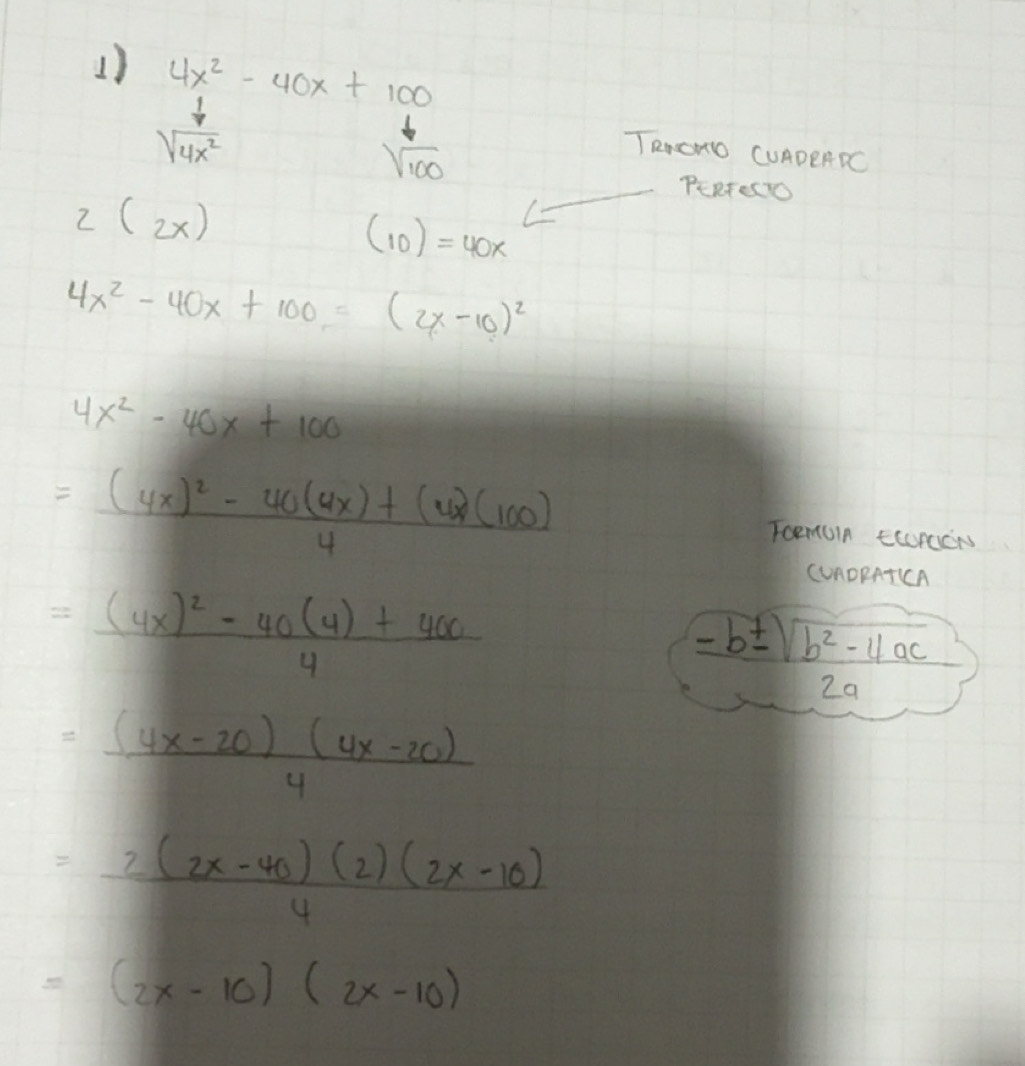 1) 4x² - 40x + 100
√4x² √100
TRINOMIO CUADRADO
PERFECTO
2 (2x) (10) = 40x
4x² - 40x + 100 = (2x - 10)²
4x² - 40x + 100
= (4x)² - 40(4x) + (4)(100)
4
= (4x)² - 40(4) + 400
4
FORMULA ECUACIÓN
CUADRATICA
-b ± √b² - 4ac
2a
= (4x - 20) (4x - 20)
4
= 2(2x - 40)(2)(2x - 10)
4
= (2x - 10) (2x - 10)